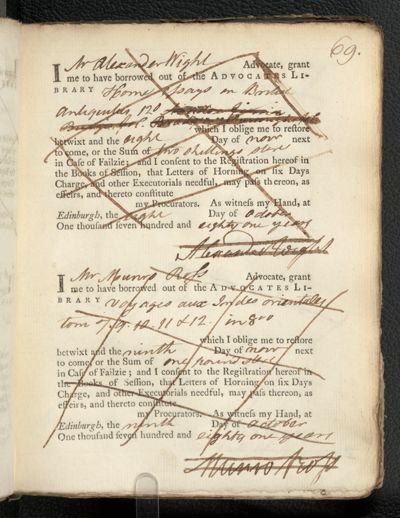 69.
I Mr Alexander Wight Advocate, grant
me to have borrowed out of the ADVOCATES LI-
BRARY Home Essays on British
Antiquities 120
which I oblige me to restore
betwixt and the eight Day of nov next
to come, or the Sum of two shillings
in Case of Failzie; and I consent to the Registration hereof in
the Books of Session, that Letters of Horning on six Days
Charge, and other Executorials needful, may pass thereon, as
effeirs, and thereto constitute
my Procurators. As witness my Hand, at
Edinburgh, the eight Day of October
One thousand seven hundred and eighty one years
Alexander Wight
I Mr Munro Ross Advocate, grant
me to have borrowed out of the ADVOCATES LI-
BRARY Voyages aux Indes orientales
tom 10 11 & 12 in 8vo
which I oblige me to restore
betwixt and the ninth Day of nov next
to come, or the Sum of one pound
in Case of Failzie; and I consent to the Registration hereof in
the Books of Session, that Letters of Horning on six Days
Charge, and other Executorials needful, may pass thereon, as
effeirs, and thereto constitute
my Procurators. As witness my Hand, at
Edinburgh, the ninth Day of October
One thousand seven hundred and eighty one years
Munro Ross